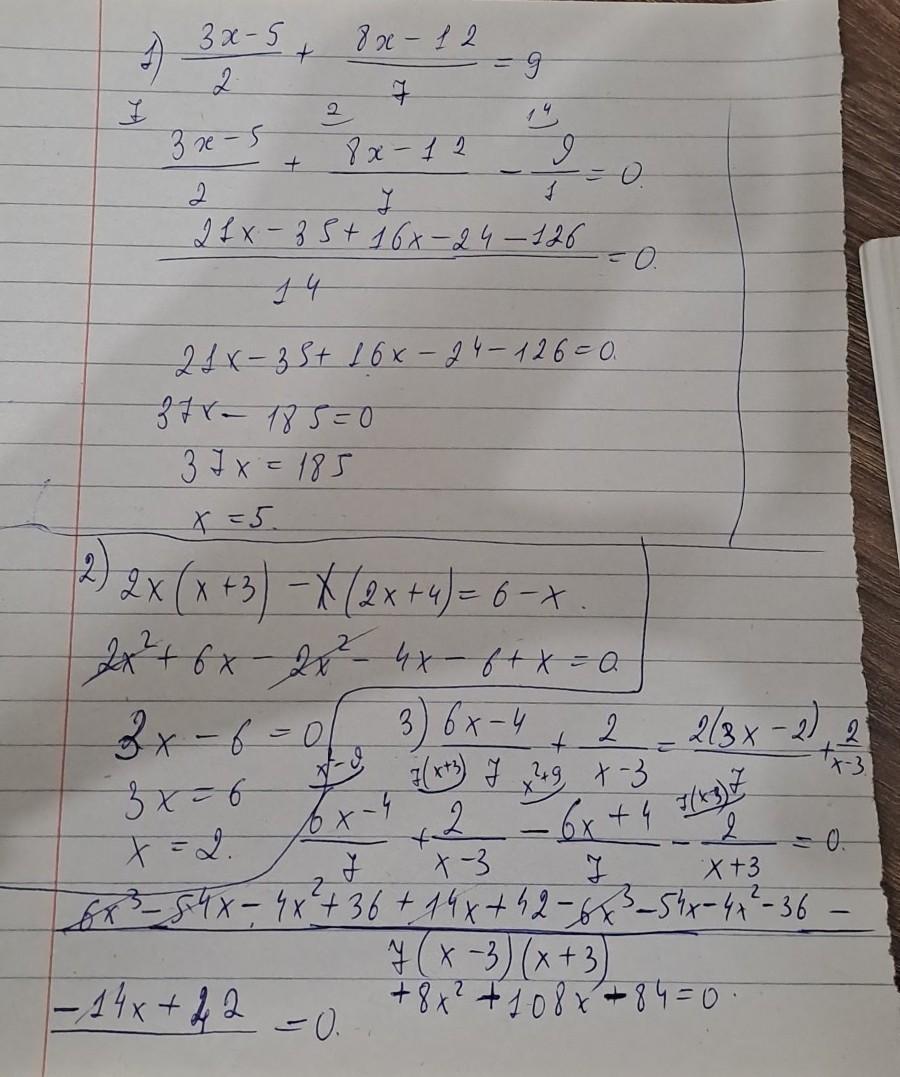 1) (3x-5)/2 + (8x-12)/7 = 9
7 2 14
(3x-5)/2 + (8x-12)/7 - 9/1 = 0.
(21x-35+16x-24-126)/14 = 0.
21x-35+16x-24-126=0.
37x-185=0
37x=185
x=5.
2) 2x(x+3)-x(2x+4)=6-x.
2x²+6x-2x²-4x-6+x=0
3x-6=0
3x=6
x=2.
3) (6x-4)/7 + 2/(x-3) = 2(3x-2)/7 + 2/(x-3)
x²-9 7(x+3) x²+9 7(x-3)
(6x-4)/7 + 2/(x-3) - (6x+4)/7 - 2/(x+3) = 0.
6x³-54x-4x²+36+14x+42-6x³-54x-4x²-36-
7(x-3)(x+3)
-14x+42 = 0.
+8x²+108x+84=0.